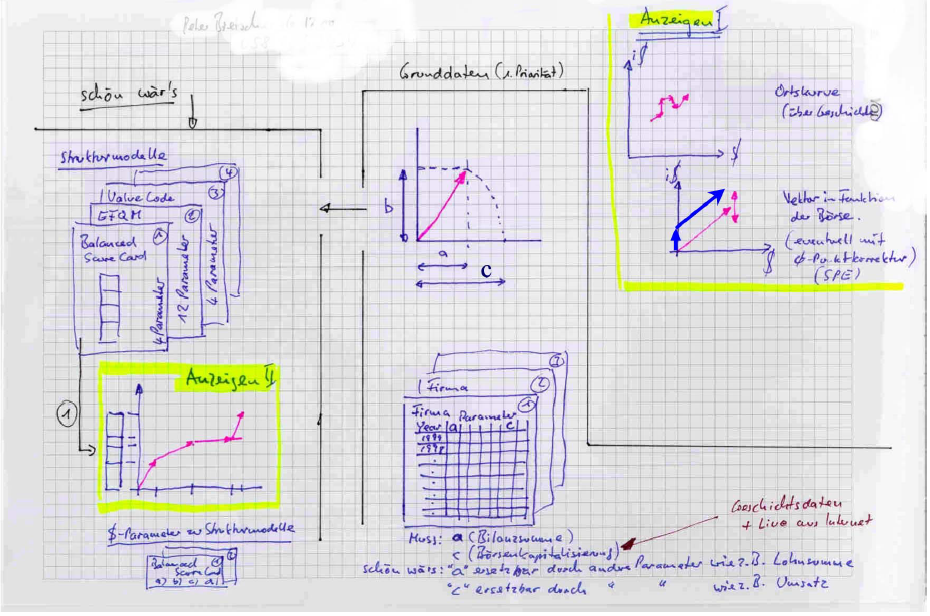 Peter
schön wär's
Strukturmodelle
④
Value Code ③
EFQM ②
Balanced ①
Score Card
4 Parameter
12 Parameter
4 Parameter
Anzeigen II
①
$-Parameter zu Strukturmodelle
②
Balanced ①
Score Card
a) b) c) d)
Grunddaten (1. Priorität)
b
a
c
③
Firma ②
①
Firma Parameter
Year a c
1999
1998
Muss: a (Bilanzsumme)
c (Börsenkapitalisierung)
schön wärs: "a" ersetzbar durch andre Parameter wie z.B. Lohnsumme
"c" ersetzbar durch " " wie z.B. Umsatz
Geschichtsdaten
+ Live aus Internet
Anzeigen I
i$
$
Ortskurve
(über Geschichte)
i$
$
Vektor in Funktion
der Börse.
(eventuell mit
ϕ-Punktkorrektur)
(SPE)